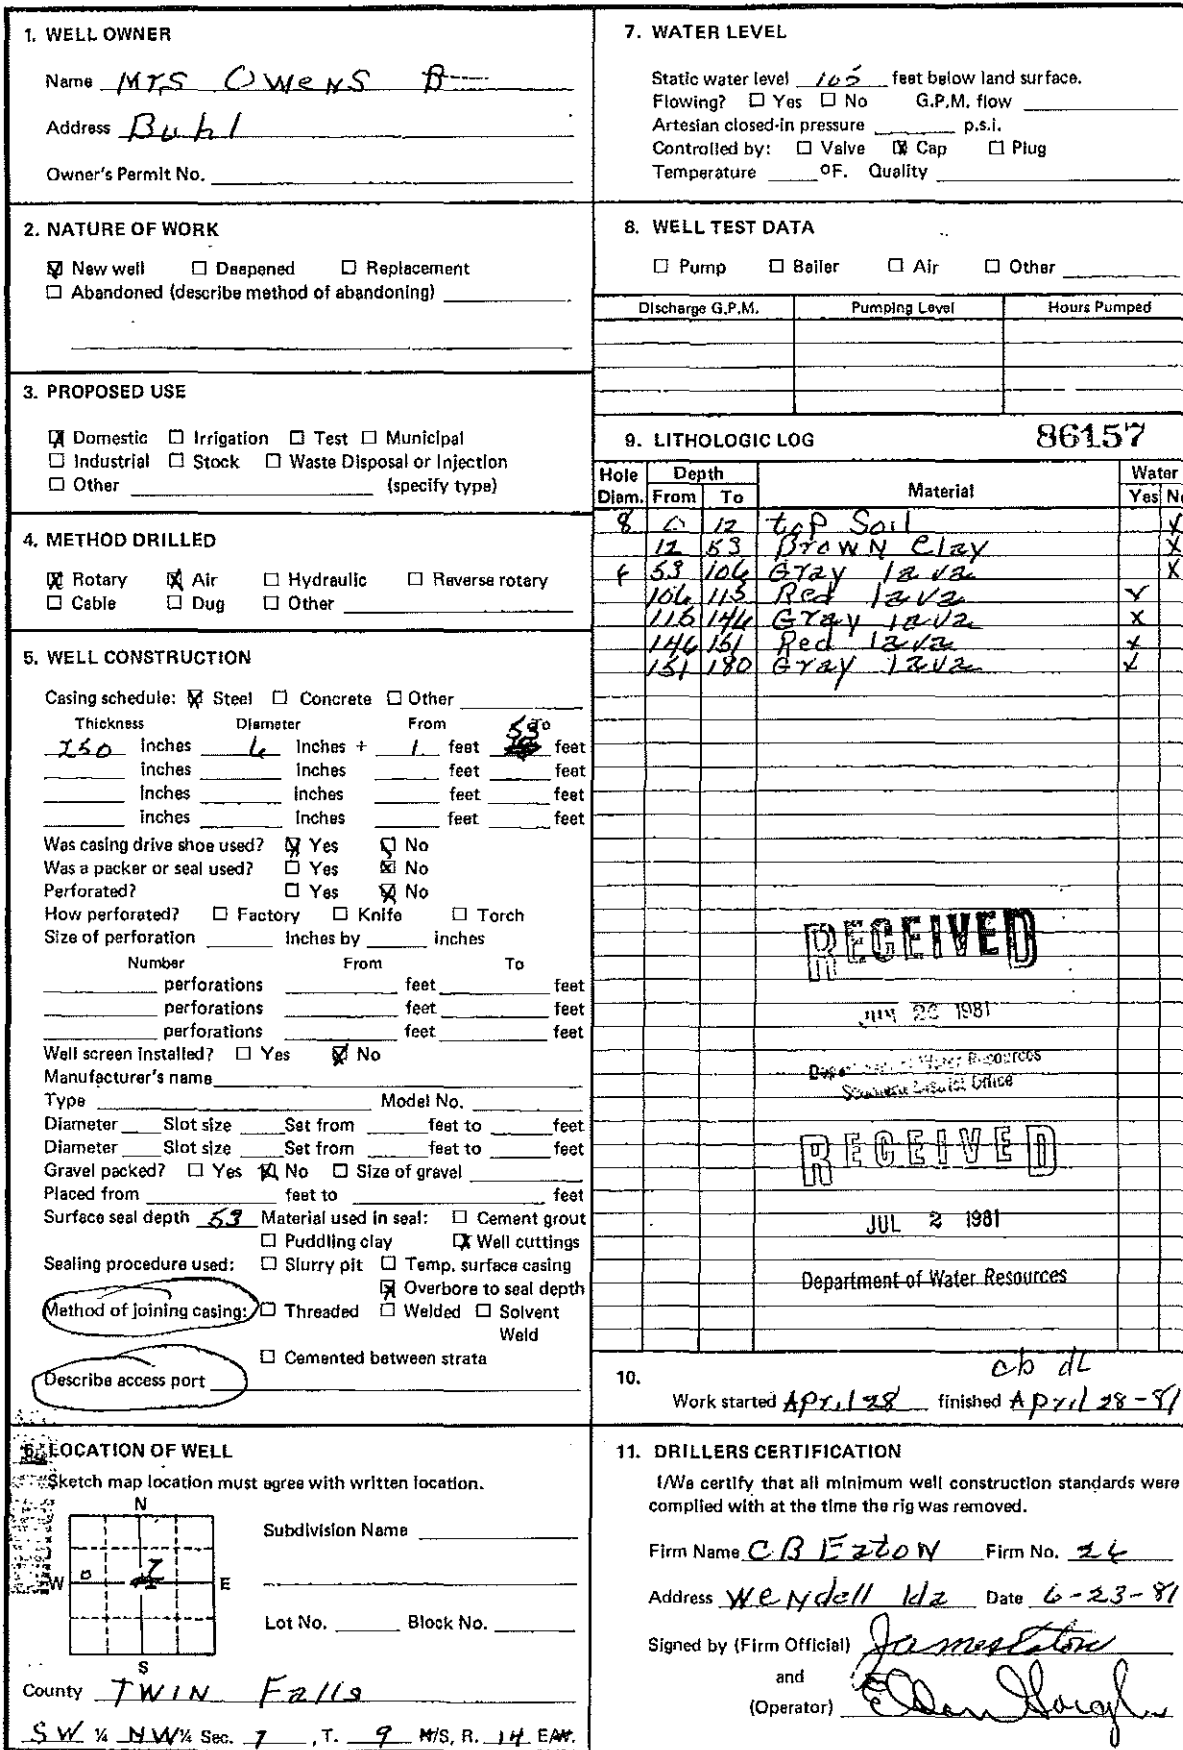 1. WELL OWNER
Name Mrs Owens B
Address Buhl
Owner's Permit No.
2. NATURE OF WORK
☒ New well ☐ Deepened ☐ Replacement
☐ Abandoned (describe method of abandoning)
3. PROPOSED USE
☒ Domestic ☐ Irrigation ☐ Test ☐ Municipal
☐ Industrial ☐ Stock ☐ Waste Disposal or Injection
☐ Other (specify type)
4. METHOD DRILLED
☒ Rotary ☒ Air ☐ Hydraulic ☐ Reverse rotary
☐ Cable ☐ Dug ☐ Other
5. WELL CONSTRUCTION
Casing schedule: ☒ Steel ☐ Concrete ☐ Other
Thickness Diameter From To
250 inches 6 inches + 1 feet 53 feet
inches inches feet feet
inches inches feet feet
inches inches feet feet
Was casing drive shoe used? ☒ Yes ☐ No
Was a packer or seal used? ☐ Yes ☒ No
Perforated? ☐ Yes ☒ No
How perforated? ☐ Factory ☐ Knife ☐ Torch
Size of perforation inches by inches
Number From To
perforations feet feet
perforations feet feet
perforations feet feet
Well screen installed? ☐ Yes ☒ No
Manufacturer's name
Type Model No.
Diameter Slot size Set from feet to feet
Diameter Slot size Set from feet to feet
Gravel packed? ☐ Yes ☒ No ☐ Size of gravel
Placed from feet to feet
Surface seal depth 53 Material used in seal: ☐ Cement grout
☐ Puddling clay ☒ Well cuttings
Sealing procedure used: ☐ Slurry pit ☐ Temp. surface casing
☒ Overbore to seal depth
Method of joining casing: ☐ Threaded ☐ Welded ☐ Solvent
Weld
☐ Cemented between strata
Describe access port
6. LOCATION OF WELL
Sketch map location must agree with written location.
N
Subdivision Name
W 7 E
Lot No. Block No.
S
County TWIN Falls
SW ¼ NW ¼ Sec. 7 , T. 9 N/S, R. 14 E/W.
7. WATER LEVEL
Static water level 105 feet below land surface.
Flowing? ☐ Yes ☐ No G.P.M. flow
Artesian closed-in pressure p.s.i.
Controlled by: ☐ Valve ☒ Cap ☐ Plug
Temperature °F. Quality
8. WELL TEST DATA
☐ Pump ☐ Bailer ☐ Air ☐ Other
Discharge G.P.M. Pumping Level Hours Pumped
9. LITHOLOGIC LOG 86157
Hole Depth Water
Diam. From To Material Yes No
8 0 12 top Soil X
12 53 Brown Clay X
6 53 106 Gray lava X
106 115 Red lava X
115 146 Gray lava X
146 151 Red lava X
151 180 Gray lava X
RECEIVED
1981
Department of Water Resources
Southern District Office
RECEIVED
JUL 2 1981
Department of Water Resources
10. cb dL
Work started April 28 finished April 28-81
11. DRILLERS CERTIFICATION
I/We certify that all minimum well construction standards were
complied with at the time the rig was removed.
Firm Name CB Eaton Firm No. 26
Address Wendell Ida Date 6-23-81
Signed by (Firm Official) James Eaton
and
(Operator)